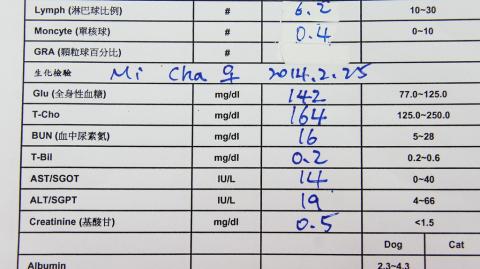 Lymph (淋巴球比例) # 6.2 10~30
Moncyte (單核球) # 0.4 0~10
GRA (顆粒球百分比)
生化檢驗 Mi Cha ♀ 2014.2.25
Glu (全身性血糖) mg/dl 142 77.0~125.0
T-Cho mg/dl 164 125.0~250.0
BUN (血中尿素氮) mg/dl 16 5~28
T-Bil mg/dl 0.2 0.2~0.6
AST/SGOT IU/L 14 0~40
ALT/SGPT IU/L 19 4~66
Creatinine (基酸甘) mg/dl 0.5 <1.5
Dog Cat
Albumin 2.3~4.3